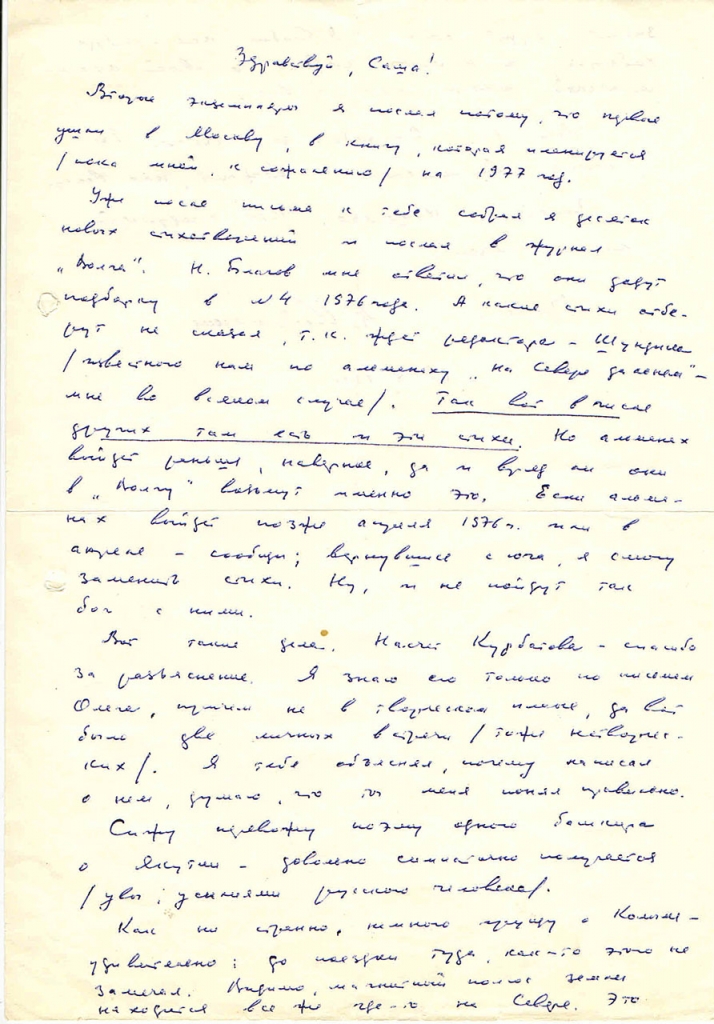 Здравствуй, Саша!
Второй экземпляр я послал потому, что первые
ушли в Москву, в книгу, которая планируется
/пока мной, к сожалению/ на 1977 год.
Уже после письма к тебе собрал я десяток
новых стихотворений и послал в журнал
„Волга". Н. Благов мне ответил, что они дадут
подборку в №4 1976 года. А какие стихи отбе-
рут не сказал, т.к. ждёт редактора – Шундика
/известного нам по альманаху „На Севере дальнем" –
мне во всяком случае/. Так вот в числе
других там есть и эти стихи. Но альманах
выйдет раньше, наверное, да и вряд ли они
в „Волгу" возьмут именно это. Если альма-
нах выйдет позже апреля 1976 г. или в
апреле – сообщи; вернувшись с юга, я смогу
заменить стихи. Ну, и не пойдут так
бог с ними.
Вот такие дела. Насчёт Курбатова – спасибо
за разъяснение. Я знаю его только по письмам
Олега, причём не в творческом плане, да вот
были две личных встречи /тоже нетворчес-
ких/. Я тебе объяснял, почему написал
о нём, думаю, что ты меня понял правильно.
Сижу перевожу поэму одного башкира
о Якутии – довольно симпатично получается
/увы, усилиями русского человека/.
Как ни странно, немного грущу о Колыме –
удивительно; до поездки туда, как-то этого не
замечал. Видимо, магнитный полюс земли
находится все же где-то на Севере. Это